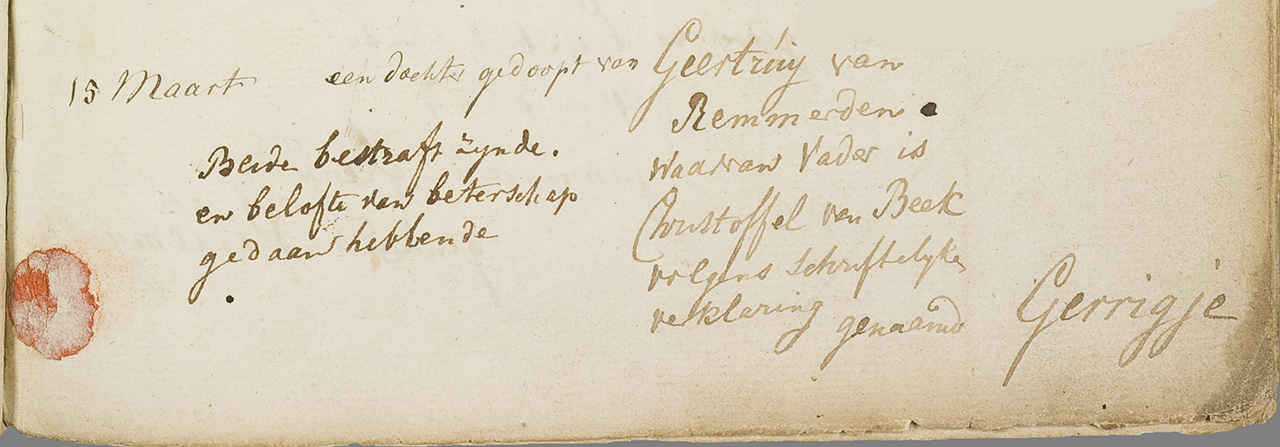 15 Maart een dochter gedoopt van Geertruij van
Remmerden.
waarvan Vader is
Christoffel van Beek
volgens schriftelijke
verklaring genaemd Gerrigje
Beide bestraft zynde.
en belofte van beterschap
gedaan hebbende